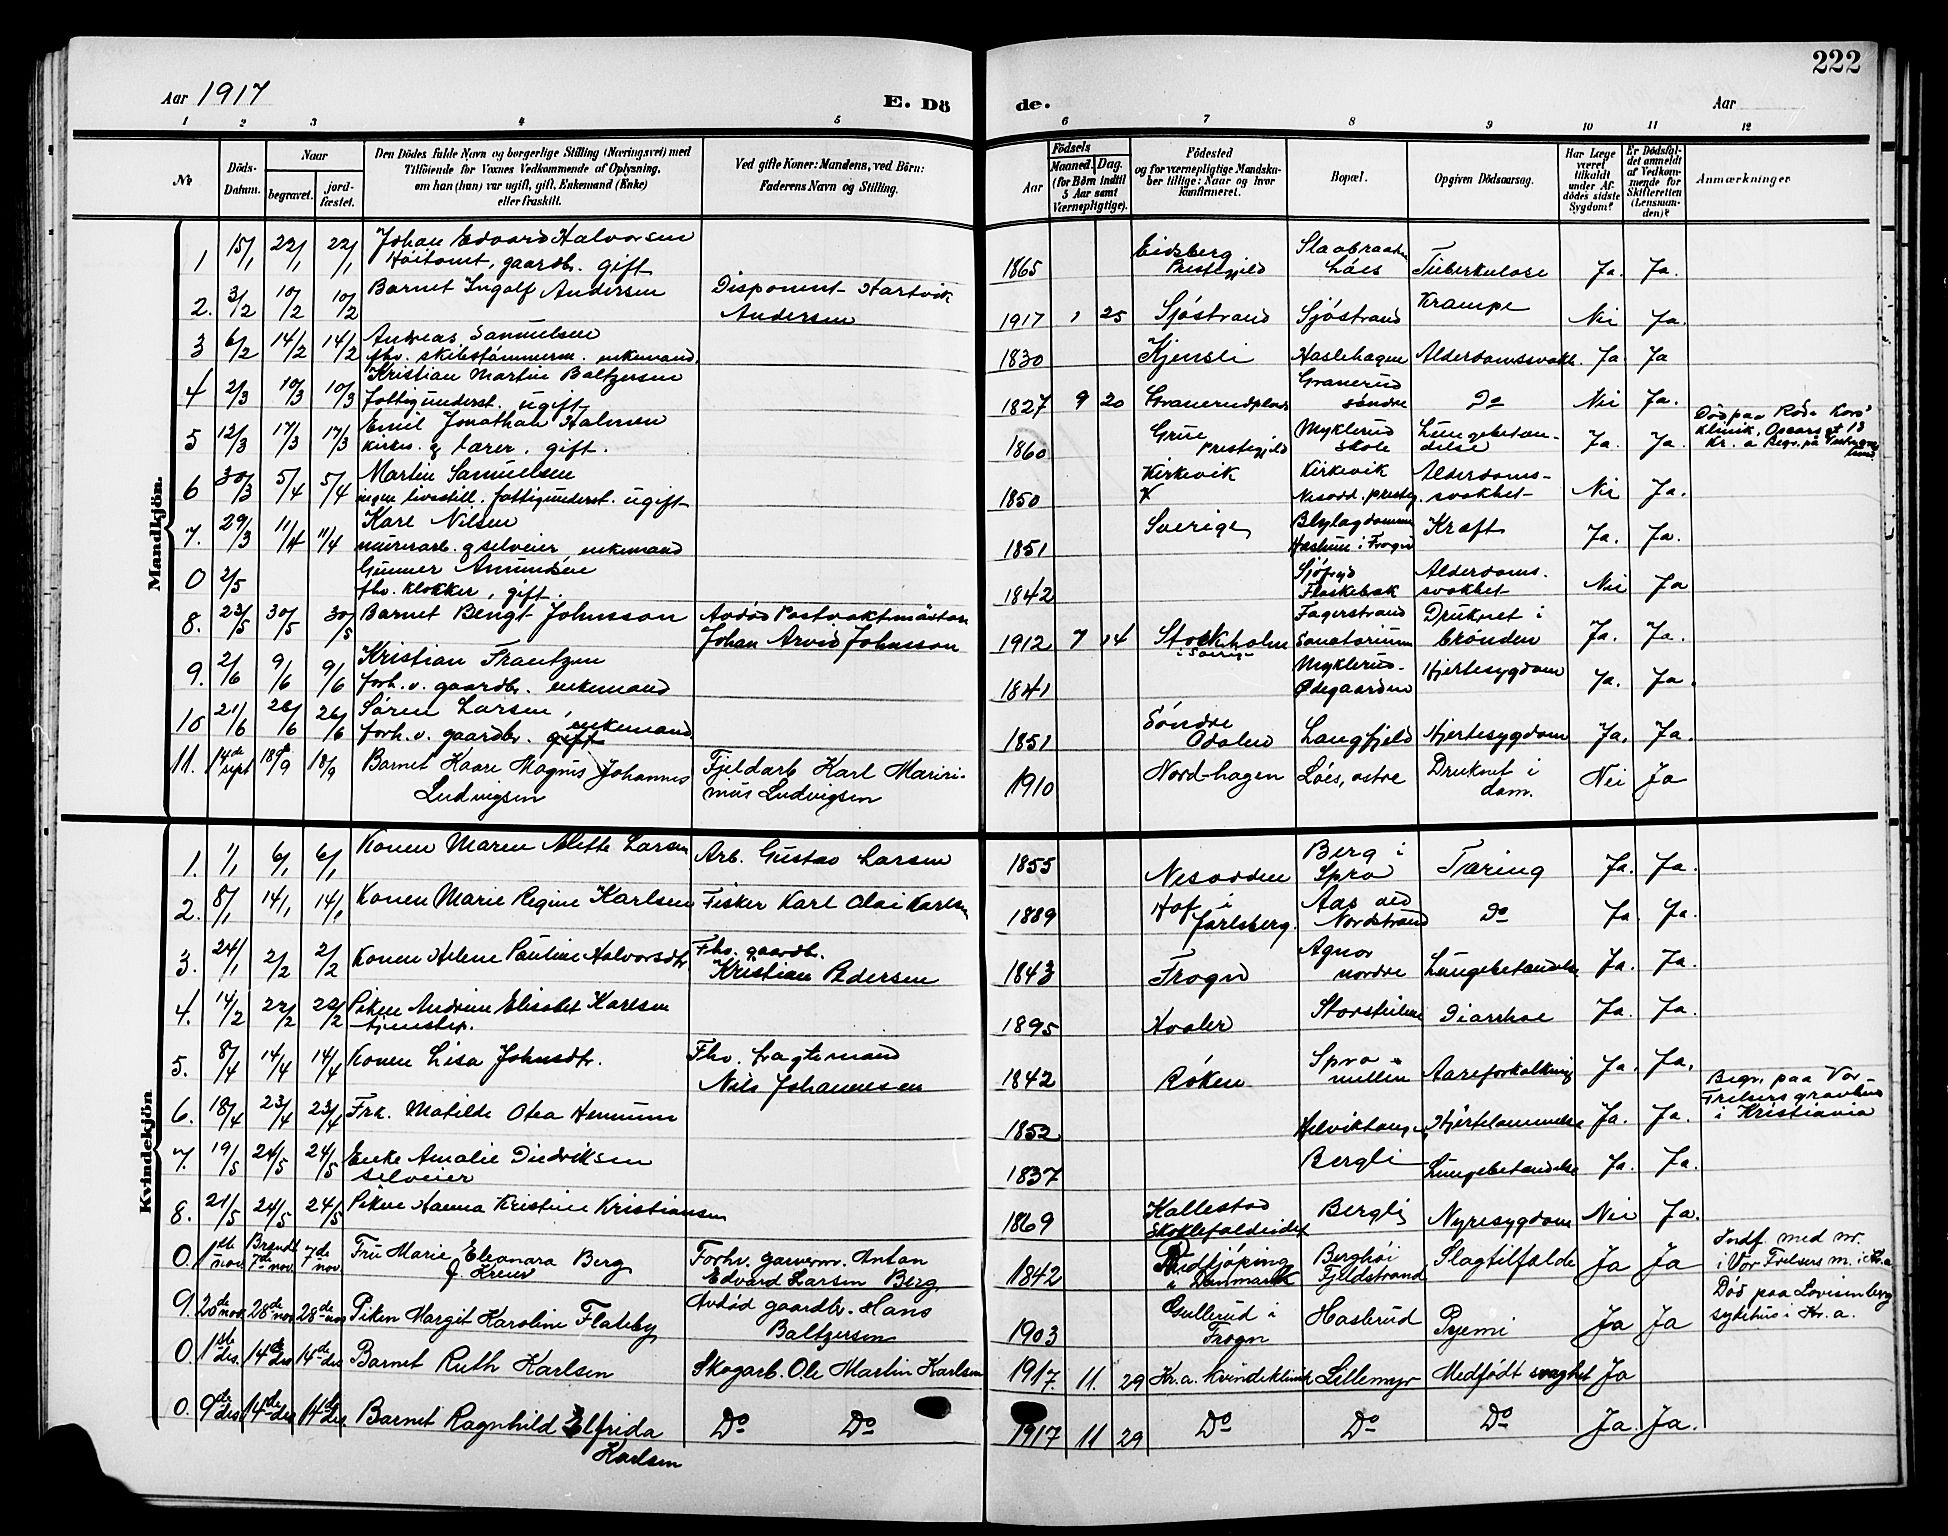 222
Aar 1917
E. Dö
de.
Aar
1 2 3 4 5 6 7 8 9 10 11 12
No
Döds-Datum.
Naar
begravet.
jord-fæstet.
Den Dödes fulde Navn og borgerlige Stilling (Næringsvei) med
Tilföiende for Voxnes Vedkommende af Oplysning,
om han (hun) var ugift, gift, Enkemand (Enke)
eller fraskilt.
Ved gifte Koner: Mandens, ved Börn:
Faderens Navn og Stilling.
Födsels
Aar
Maaned.
Dag.
(for Børn indtil
5 Aar samt
Værnepligtige).
Födested
og for værnepligtige Mandska-
ber tillige: Naar og hvor
konfirmeret.
Bopæl.
Opgiven Dödsaarsag.
Har Læge
været
tilkaldt
under Af-
dödes sidste
Sygdom?
Er Dödsfal-
det anmeldt
af Vedkom-
mende for
Skifteretten
(Lensman-
den)?
Anmærkninger
Mandkjön.
1 15/1 22/1 22/1 Johan Edvard Halvorsen
Høitomt, gaardbr. gift
1865 Eidsberg Prestegjeld Tuberkulose Ja. Ja.
2. 3/2 10/2 10/2 Barnet Ingolf Andersen Disponent Hartvik
Andersen
1917 1 25 Sjøstrand Sjøstrand Krampe Nei Ja.
3 6/2 14/2 14/2 Andreas Samuelsen
fhv. skibstømmerm. enkemand.
1830 Kjensli Haslehagen Ja. Ja
4 2/3 10/3 10/3 Kristian Martin Baltzersen
fattigunderst. ugift
1827 9 20 Granerudplads Granerud søndre Do Nei Ja.
5 12/3 17/3 17/3 Emil Jonathan Halmen
kirkes. og lærer. gift.
1860 Grue Prestegjeld Myklerud skole Lungebetændelse Ja. Ja. Död paa Röde Kors'
6 30/3 5/4 5/4 Martin Samuelsen
ingen livsstill. fattigunderst. ugift
1850 Kirkevik Kirkevik Nesodd. presteg. Alderdoms-svakhet Nei Ja.
7. 29/3 11/4 11/4 Karl Nilsen
murerarb. og selveier, enkemand
1851 Sverige i Frogn Kræft Ja. Ja.
0 2/5 Gunner Amundsen
fhv. klokker, gift.
1842 Flaskebæk Alderdoms-svakhet Nei Ja
8. 23/5 30/5 30/5 Barnet Bengt Johnsson Avdød Postvaktmästare
Johan Arvid Johnsson
1912 7 14 Stockholm i Sverige Fagerstrand Sanatorium Druknet i brönden Ja. Ja.
9. 2/6 9/6 9/6 Kristian Frantzen
forh. v. gaardbr. enkemand
1841 Myklerud-Ødegaarden Hjertesygdom Ja. Ja.
10 21/6 26/6 26/6 Søren Larsen,
forh. v. gaardbr. gift enkemand
1851 Söndre Odalen Langfjeld Hjertesygdom Ja. Ja.
11. 14de sept 18/9 18/9 Barnet Kaare Magnus Johannes
Ludvigsen
Fjeldarb Karl Marini-
mus Ludvigsen
1910 Nord-hagen Löes, østre Druknet i dam. Nei Ja
Kvindekjön
1. 1/1 6/1 6/1 Konen Maren Alette Larsen Arb. Gustav Larsen
1855 Nesodden Berg i Spro Tæring Ja. Ja.
2. 8/1 14/1 14/1 Konen Marie Regine Karlsen Fisker Karl Olai Karlsen
1889 Hof i Jarlsberg. Aas ved Nordstrand Do Ja. Ja.
3. 24/1 2/2 2/2 Konen Helene Pauline Halvorsdtr. Fhv. gaardbr.
Kristian Pedersen
1843 Frogn Agnor nordre Lungebetændelse Ja. Ja.
4. 14/2 22/2 22/2 Piken Andrine Elisabet Karlsen
tjenestep.
1895 Hvaler Storsteilene Diarrhoe Ja. Ja.
5. 8/4 14/4 14/4 Konen Lisa Johnsdtr. Fhv. fragtemand
Nils Johannesen
1842 Röken Spro Aareforkalkning Ja. Ja.
6. 18/4 23/4 23/4 Frk. Matilde Otea Hennum
1852 Helviktangen Hjertelammelse Ja. Ja. Begr. paa Vor
Frelsers gravlund
i Kristiania
7. 19/5 24/5 24/5 Enke Amalie Diedriksen
selveier
1837 Bergli Lungebetændelse Ja. Ja.
8. 21/5 24/5 24/5 Piken Hanna Kristine Kristiansen
1869 Hallestad Skoklefaldeidet Bergli Nyresygdom Nei Ja.
0. 1ste nov Brændt 7de nov. 7de nov Fru Marie Eleonora Berg
f. Kreue
Forhv. garverm. Anton
Edvard Larsen Berg
1842 Rudkjöping i Danmark Berghöi Fjeldstrand Slagtilfælde Ja Ja Indf. med nr.
i Vor Frelsers m. i Kr.a
9. 20de nov. 28de nov 28de nov Piken Margit Karoline Flateby Avdöd gaardbr. Hans
Baltzersen
1903 Gullerud i Frogn Haslerud Pyemi Ja Ja Död paa Lovisenberg
sykehus i Kr.a.
0. 1ste des. 14de des 14de des Barnet Ruth Karlsen Skogarb. Ole Martin Karlsen
1917. 11. 29 Kr.a. Kvindeklinik Lillemyr Medfödt svaghet Ja
0. 9de des. 14de des 14de des Barnet Ragnhild Elfrida
Karlsen
Do Do
1917 11 29 Do Do Do Ja. Ja.